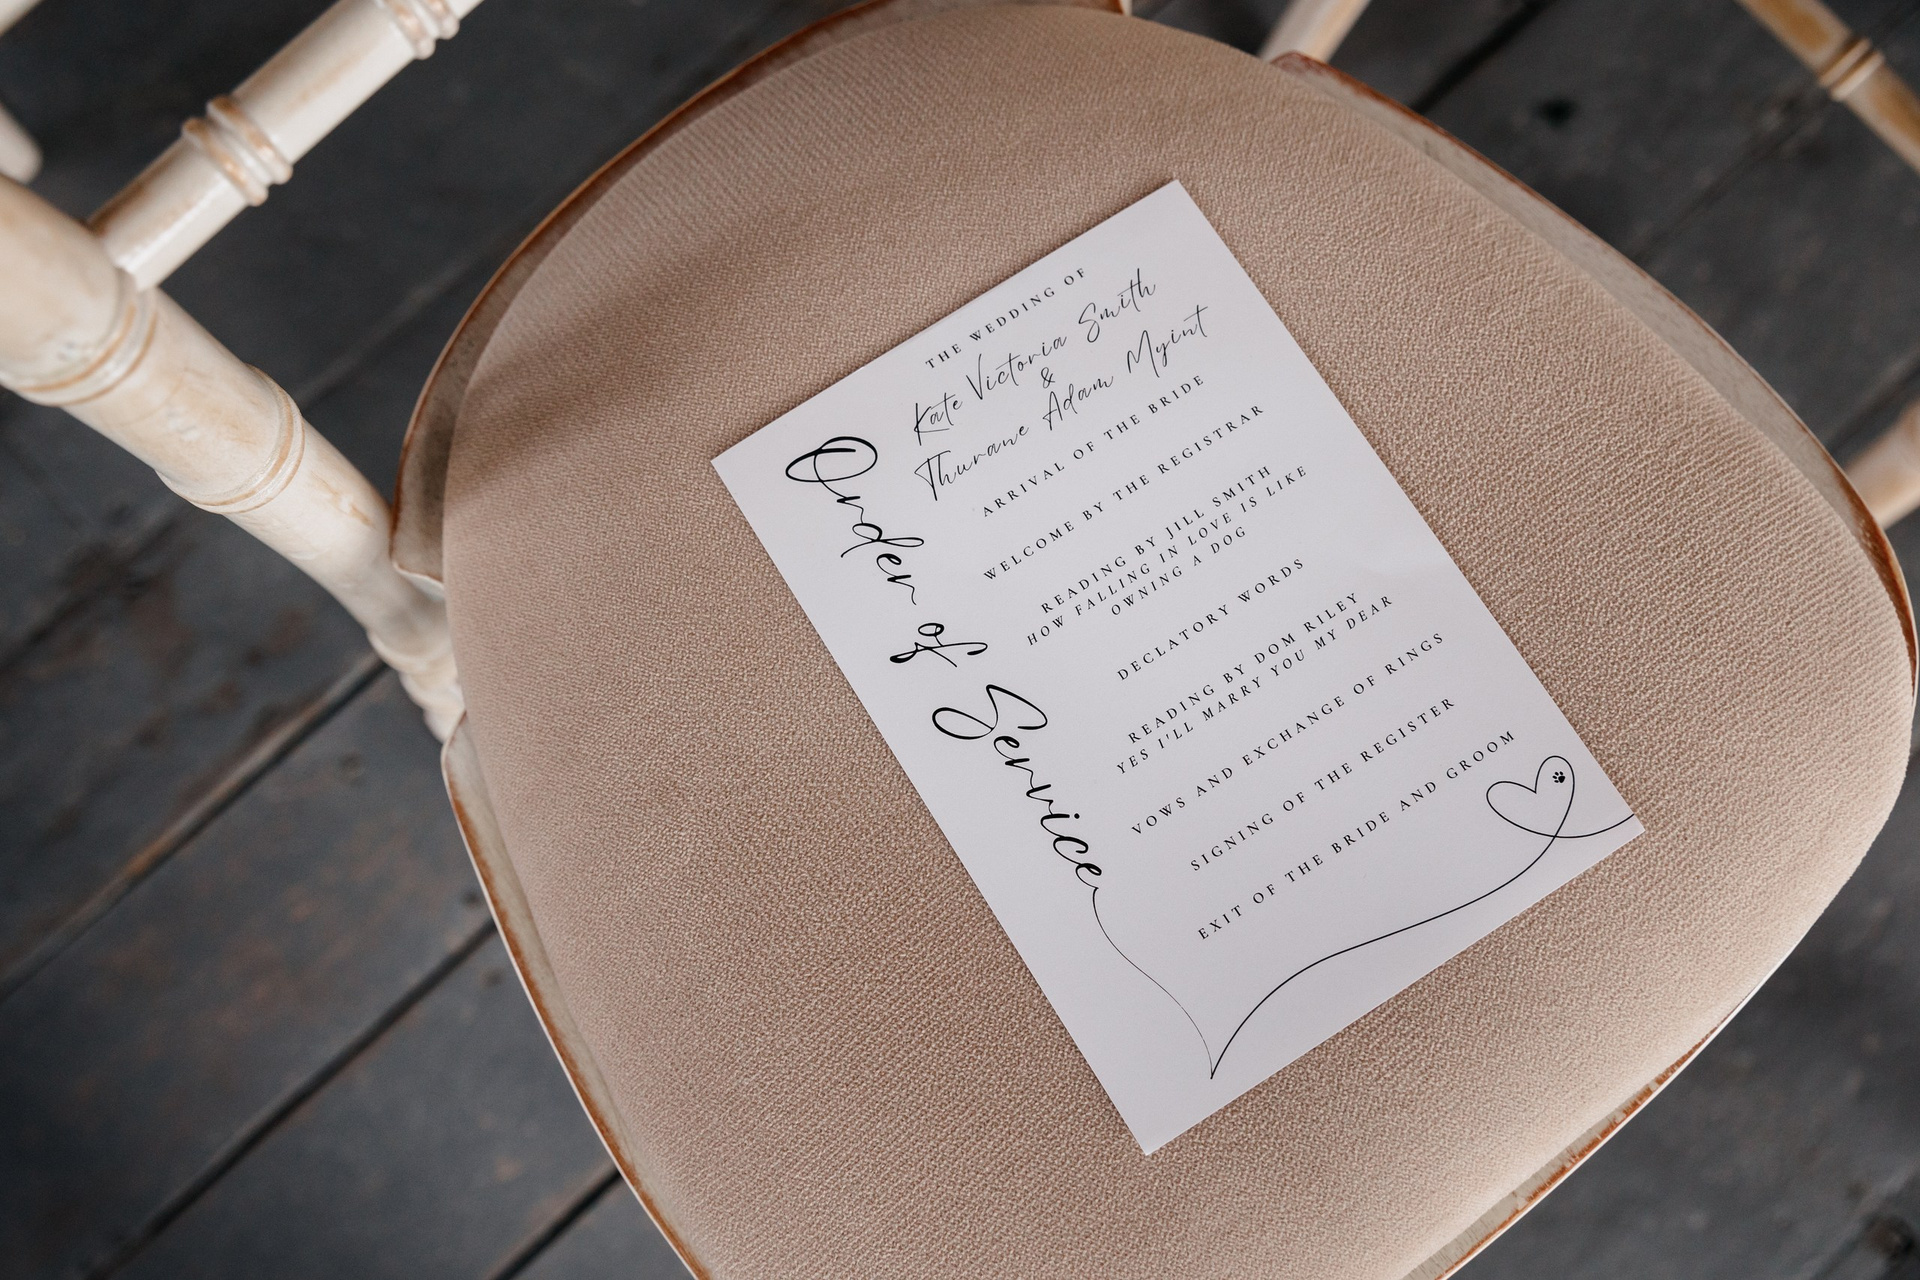 THE WEDDING OF
Kate Victoria Smith
&
Thurane Adam Myint
Order of Service
ARRIVAL OF THE BRIDE
WELCOME BY THE REGISTRAR
READING BY JILL SMITH
HOW FALLING IN LOVE IS LIKE
OWNING A DOG
DECLATORY WORDS
READING BY DOM RILEY
YES I'LL MARRY YOU MY DEAR
VOWS AND EXCHANGE OF RINGS
SIGNING OF THE REGISTER
EXIT OF THE BRIDE AND GROOM